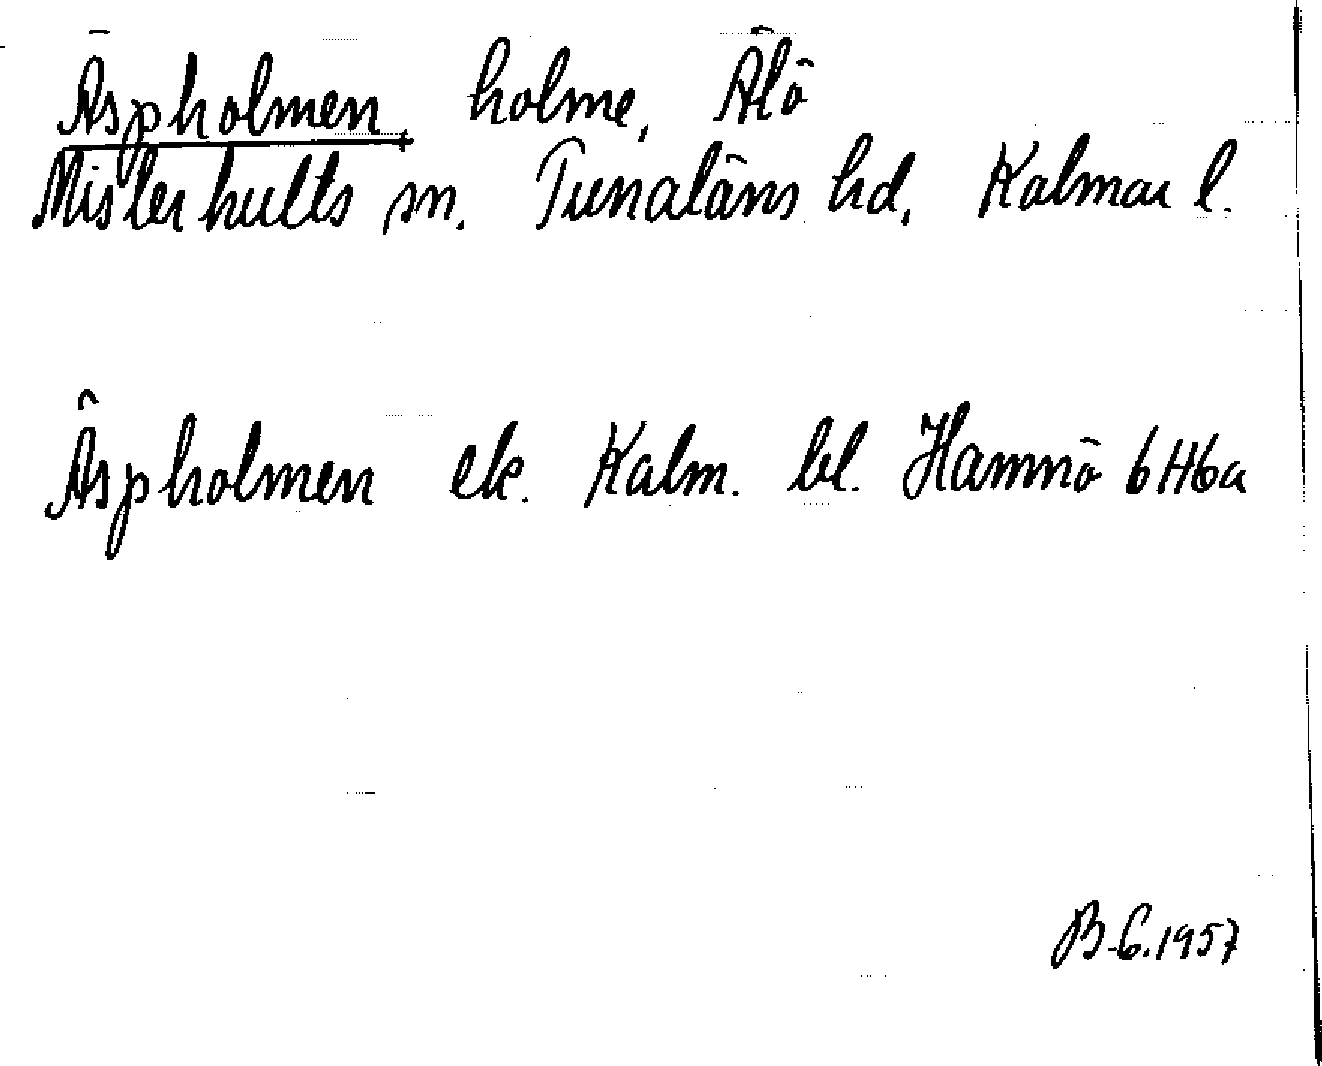 Äspholmen, holme, Älö
Misterhults sn. Tunaläns hd, Kalmar l.
Äspholmen ek. Kalm. bl. Hamnö 6H6a
B-G.1957